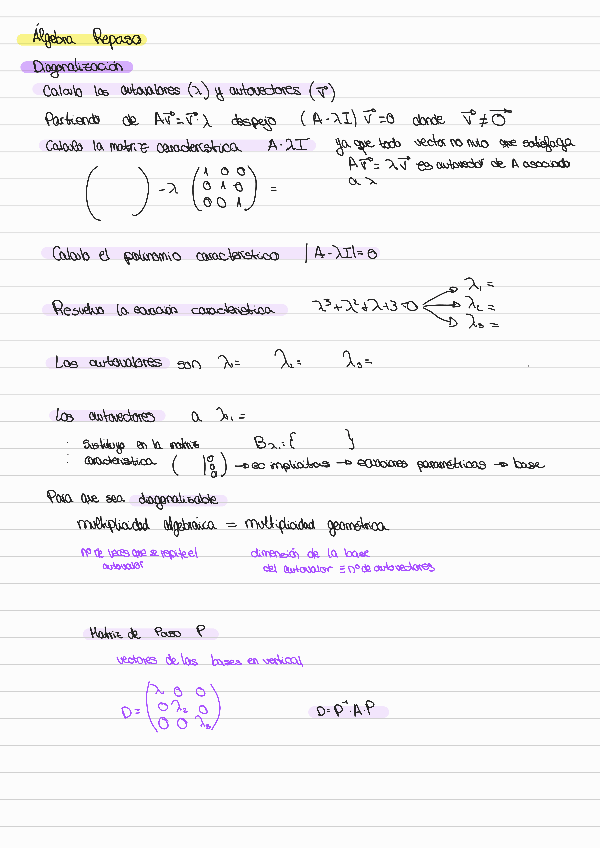 Álgebra Repaso
Diagonalización
Calculo los autovalores (λ) y autovectores (v⃗)
Partiendo de Av⃗=v⃗λ despejo (A-λI)v⃗=0 donde v⃗≠0⃗
Calculo la matriz característica A-λI ya que todo vector no nulo que satisfaga
Av⃗=λv⃗ es autovector de A asociado
a λ
( ) -λ (1 0 0
0 1 0
0 0 1) =
Calculo el polinomio característico |A-λI|=0
Resuelvo la ecuación característica λ³+λ²+λ+3=0
λ₁=
λ₂=
λ₃=
Los autovalores son λ= λ₂= λ₃=
Los autovectores a λ₁=
· Sustituyo en la matriz B λ₁={ }
· característica ( |0 0 0) → ec implícitas → ecuaciones paramétricas → base
Para que sea diagonalizable
multiplicidad algebraica = multiplicidad geométrica
nº de veces que se repite el autovalor
dimensión de la base
del autovalor ≡ nº de autovectores
Matriz de Paso P
vectores de las bases en vertical
D=(λ 0 0
0 λ₂ 0
0 0 λ₃)
D=P⁻¹·A·P